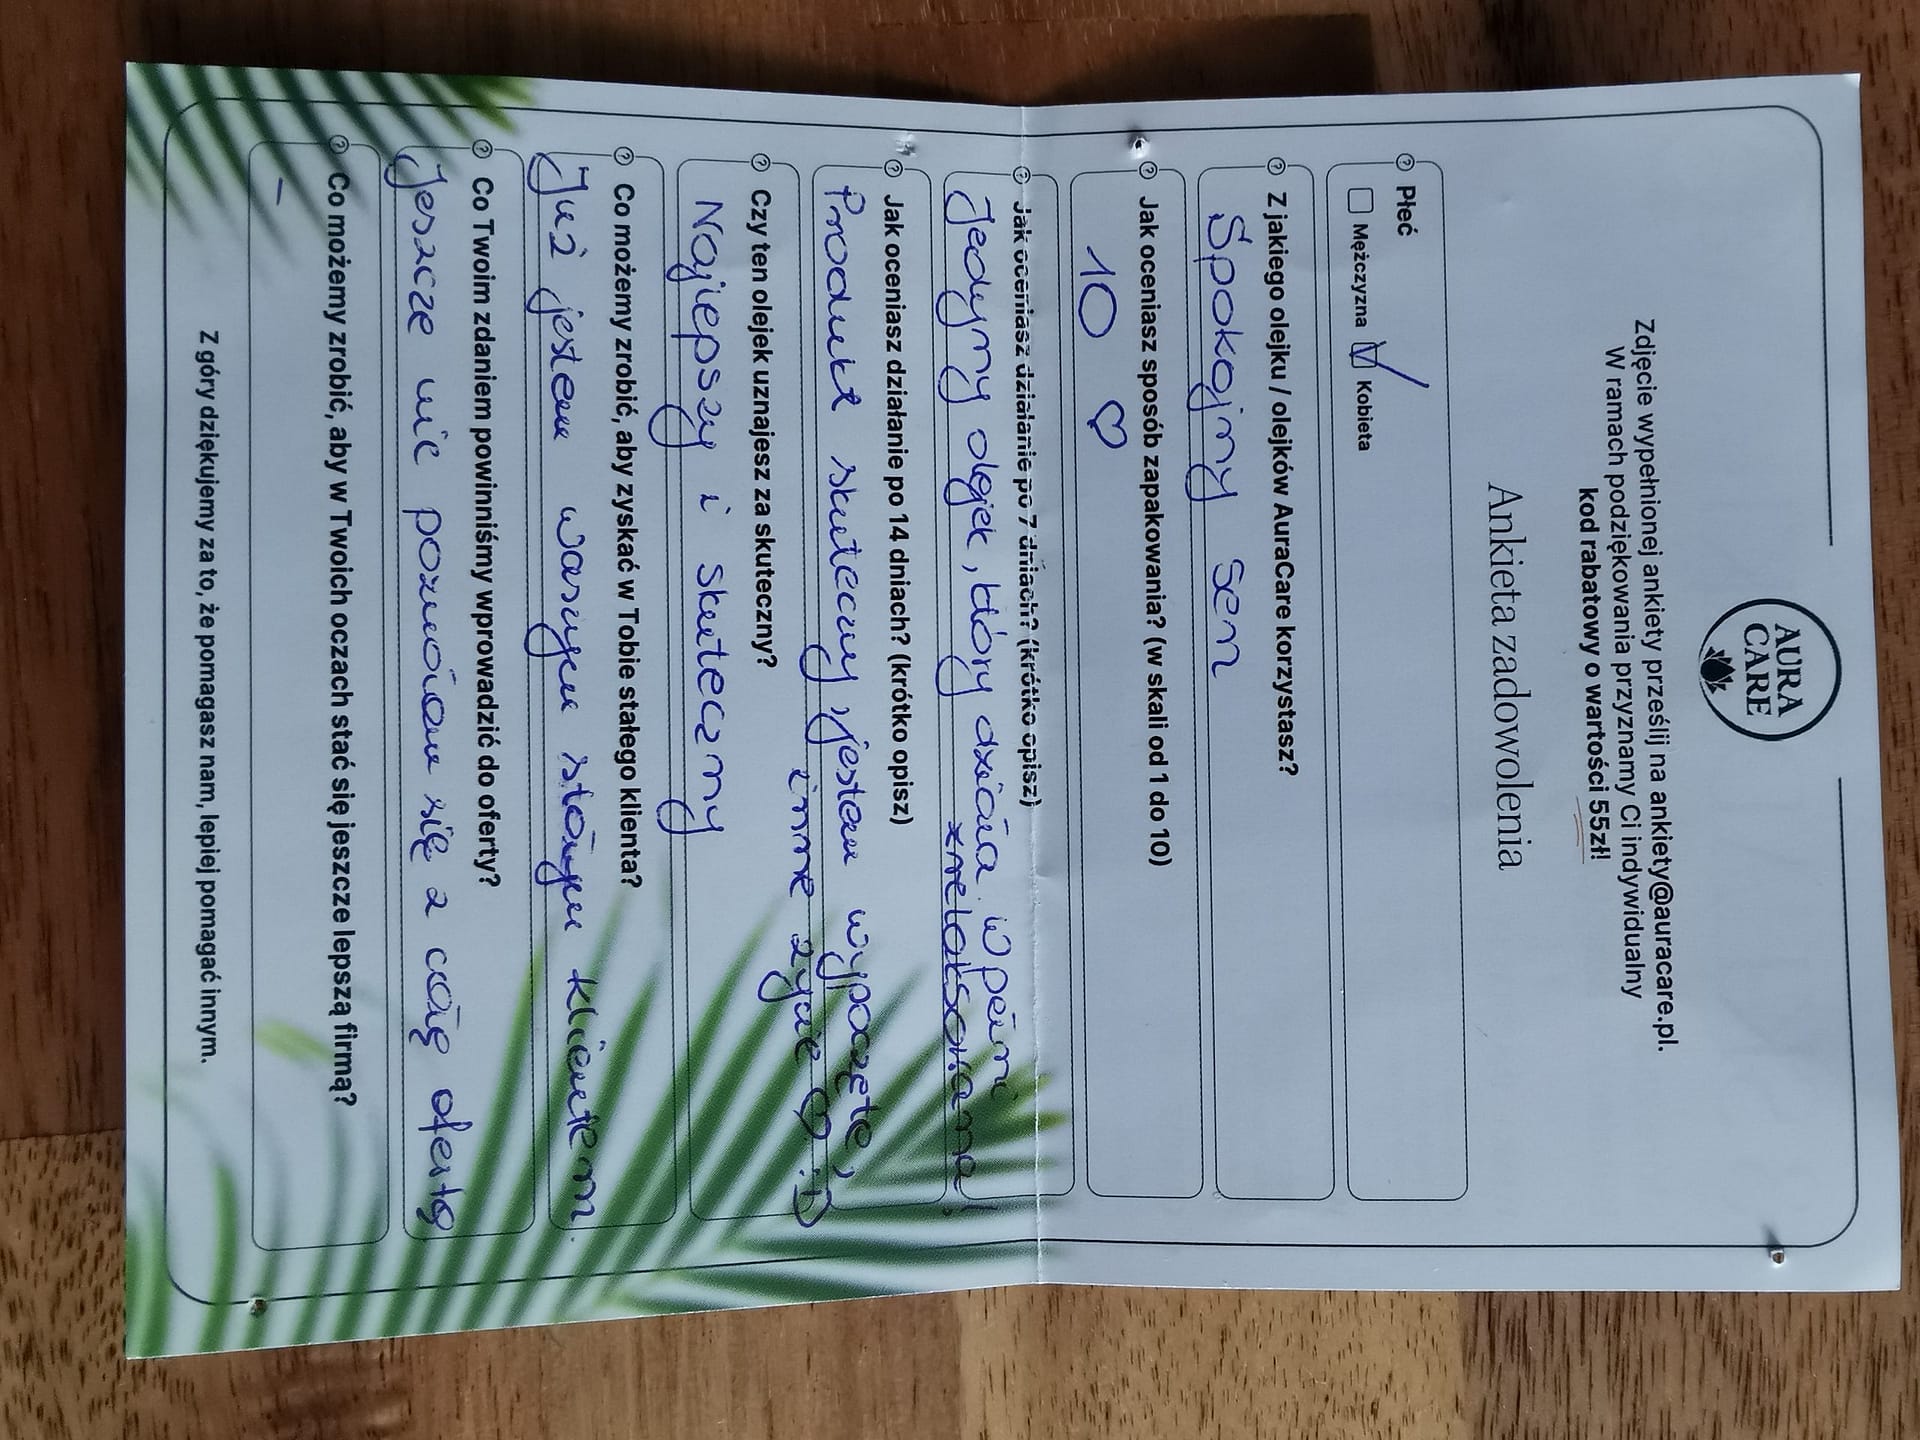 AURA
CARE
Zdjęcie wypełnionej ankiety prześlij na ankiety@auracare.pl.
W ramach podziękowania przyznamy Ci indywidualny
kod rabatowy o wartości 55zł!
Ankieta zadowolenia
Płeć
Mężczyzna Kobieta
Z jakiego olejku / olejków AuraCare korzystasz?
Spokojny sen
Jak oceniasz sposób zapakowania? (w skali od 1 do 10)
10 ♡
Jak oceniasz działanie po 7 dniach? (krótko opisz)
Jedyny olejek, który działa. W pełni
zrelaksowana!
Jak oceniasz działanie po 14 dniach? (krótko opisz)
Produkt skuteczny, jestem wypoczęta,
inne życie ♡ :D
Czy ten olejek uznajesz za skuteczny?
Najlepszy i skuteczny
Co możemy zrobić, aby zyskać w Tobie stałego klienta?
Już jestem waszym stałym klientem.
Co Twoim zdaniem powinniśmy wprowadzić do oferty?
Jeszcze nie poznałam się z całą ofertą
Co możemy zrobić, aby w Twoich oczach stać się jeszcze lepszą firmą?
-
Z góry dziękujemy za to, że pomagasz nam, lepiej pomagać innym.